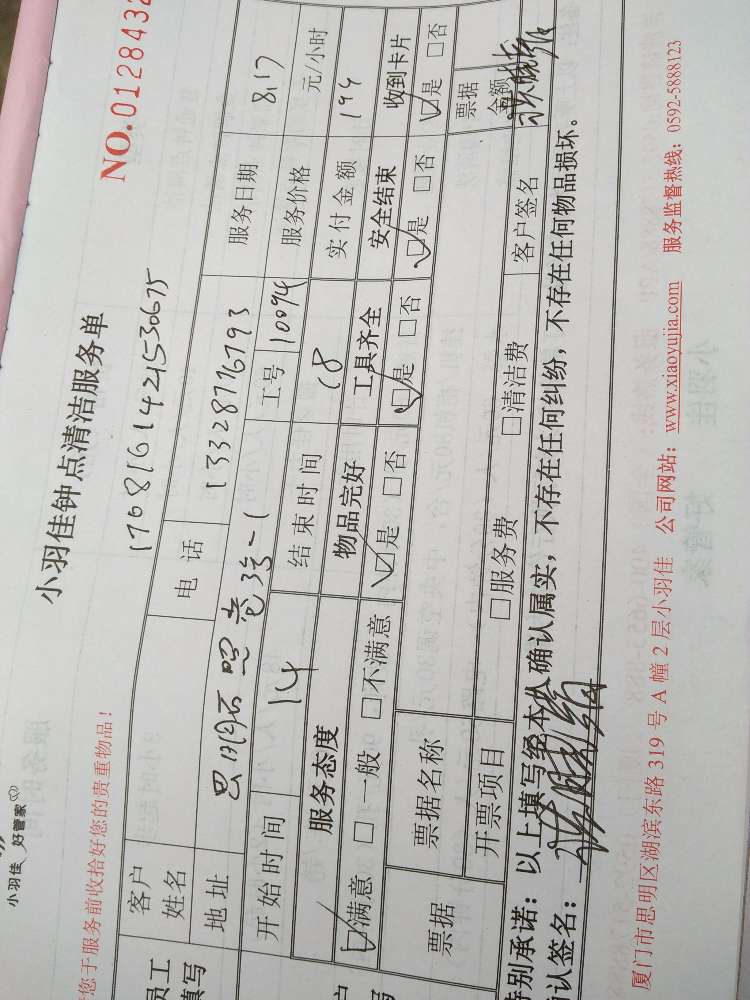 小羽佳 好管家
NO.0128432
小羽佳钟点清洁服务单
您于服务前收拾好您的贵重物品！
1708161421530675
员工
填写
客户
姓名
电 话
13328776793
服务日期
8.17
地址
工号
10094
服务价格
元/小时
开始时间
14
结束时间
18
实付金额
194
服务态度
物品完好
工具齐全
安全结束
收到卡片
☑满意 □一般 □不满意
☑是 □否
☑是 □否
☑是 □否
☑是 □否
票据
票据名称
票据
金额
开票项目
□服务费
□清洁费
客户签名
特别承诺：以上填写经本人确认属实，不存在任何纠纷，不存在任何物品损坏。
确认签名：
厦门市思明区湖滨东路 319 号 A 幢 2 层小羽佳 公司网站：www.xiaoyujia.com 服务监督热线：0592-5888123